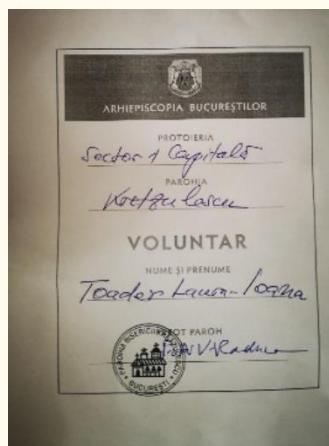 ARHIEPISCOPIA BUCUREȘTILOR
PROTOIERIA
Sector 1 Capitală
PAROHIA
Kretzulescu
VOLUNTAR
NUME ȘI PRENUME
Toader Laura-Ioana
PREOT PAROH
PAROHIA BISERICII KRETZULESCU
BUCUREȘTI